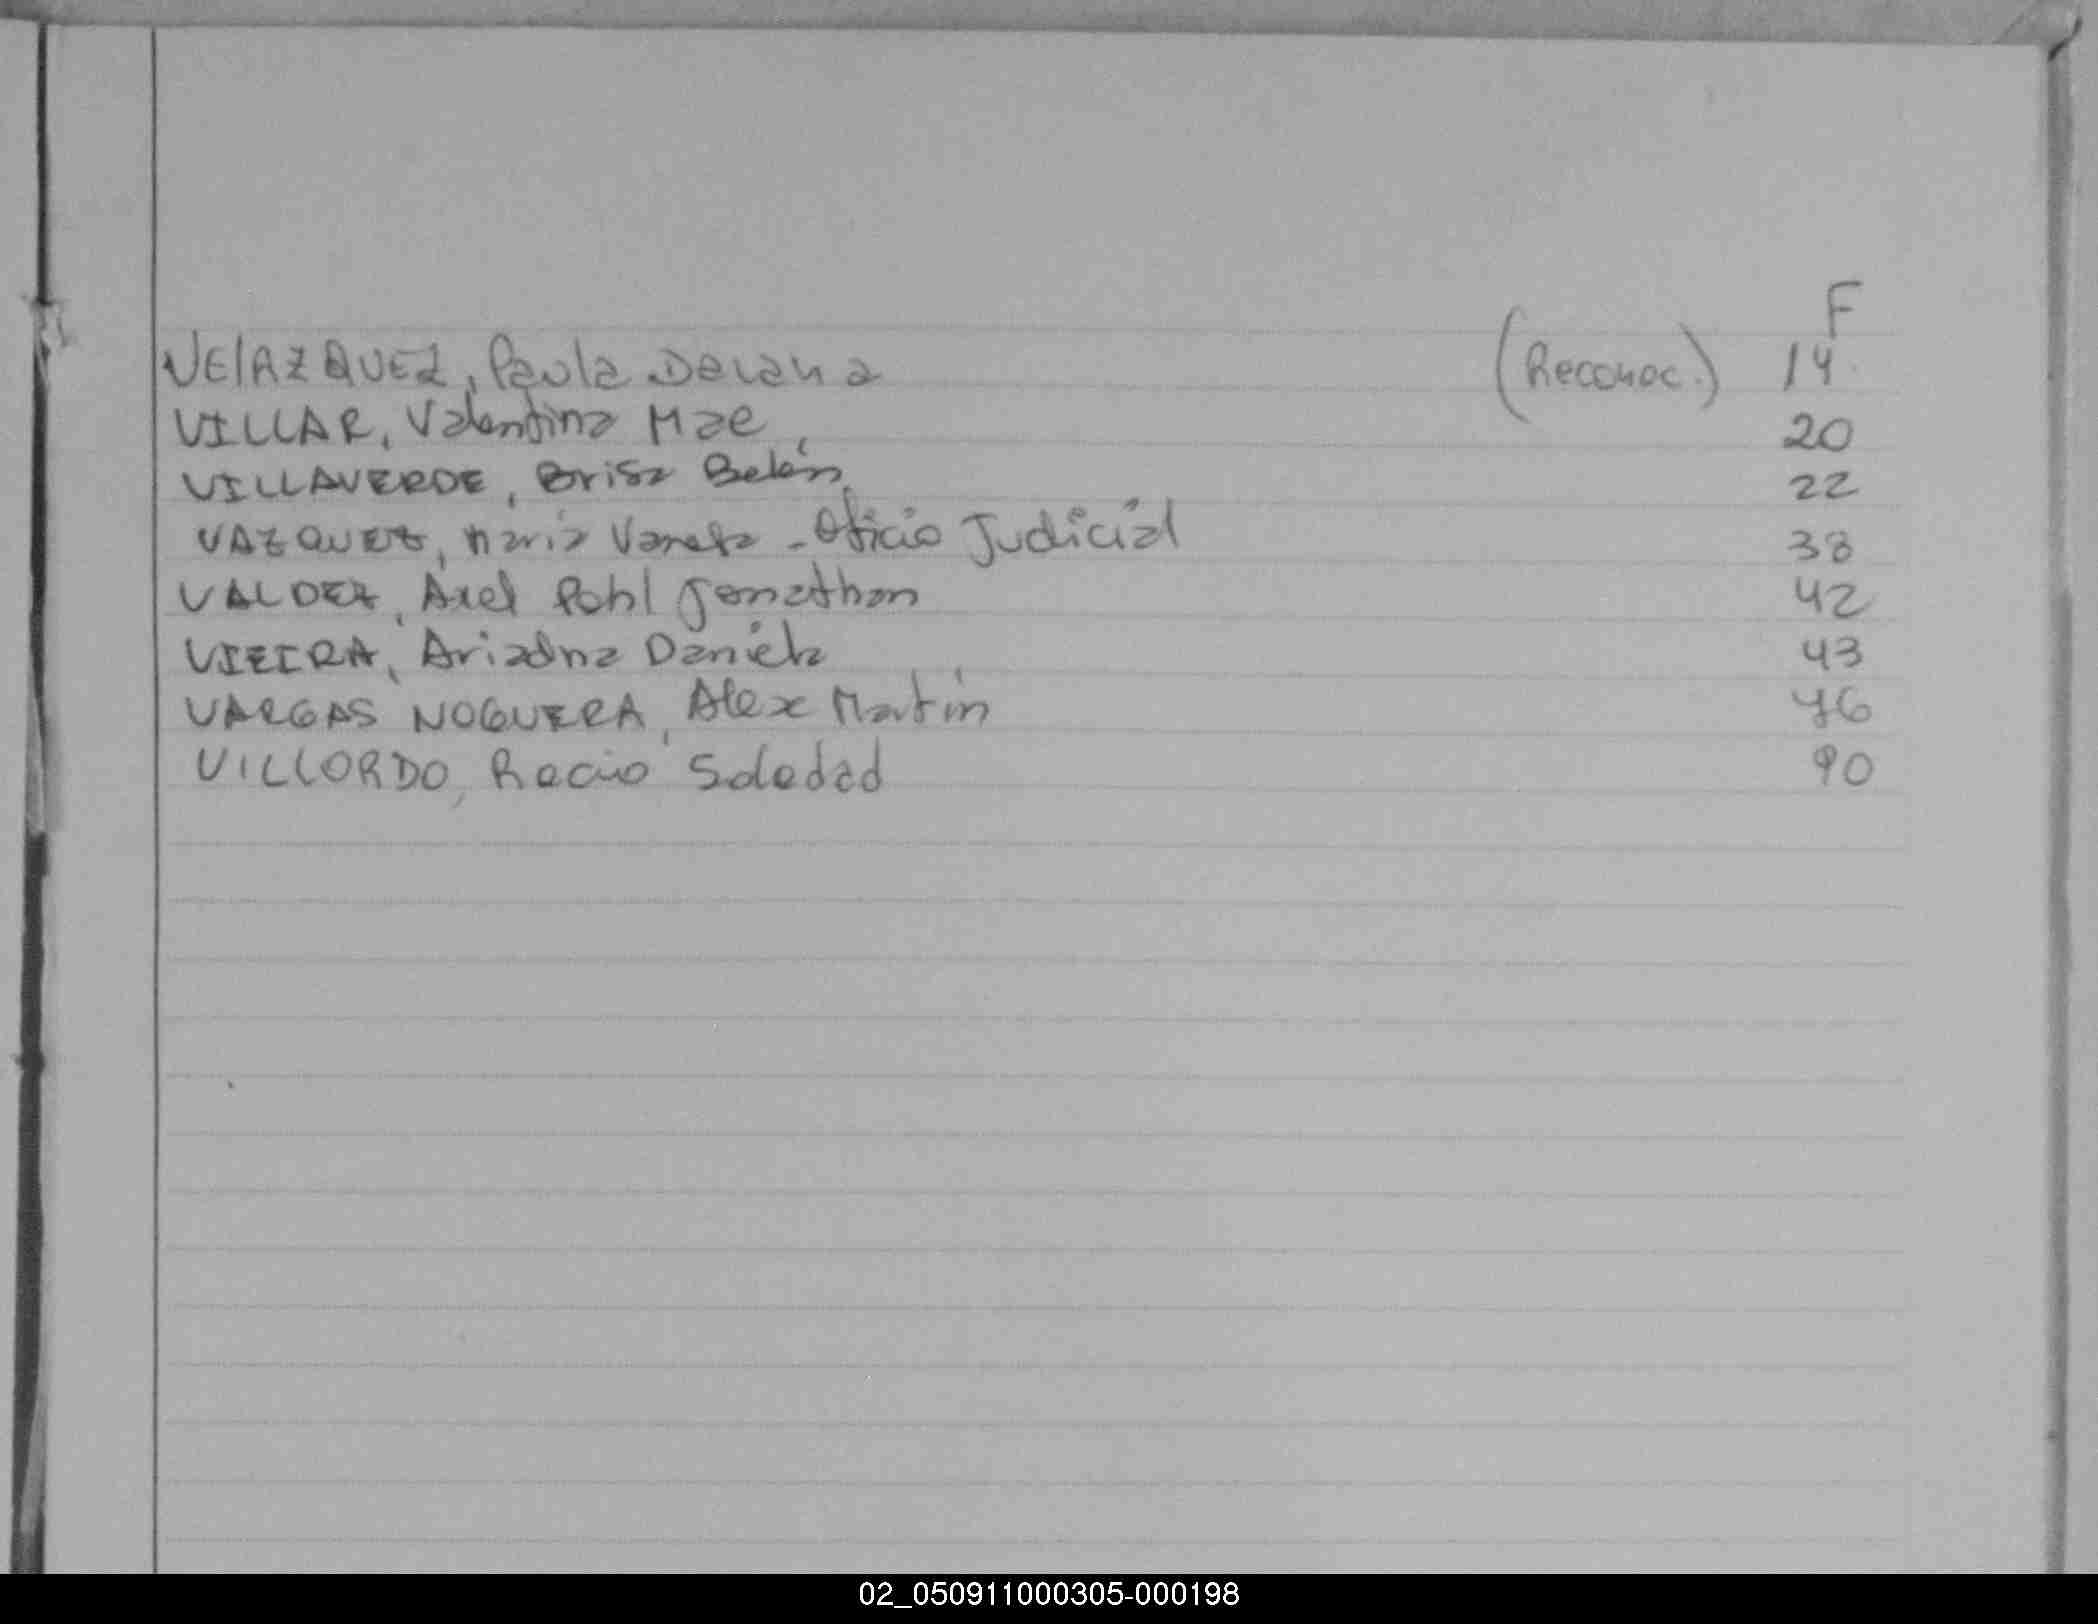 F
VELAZQUEZ, Paula Daiana (Reconoc.) 14
VILLAR, Valentina Mae, 20
VILLAVERDE, Brisa Belén 22
VAZQUEZ, María Vanesa - Oficio Judicial 38
VALDEZ, Axel Pohl Jonathan 42
VIEIRA, Ariadna Daniela 43
VARGAS NOGUERA, Alex Martín
VILLORDO, Rocio Soledad 90
02_050911000305-000198